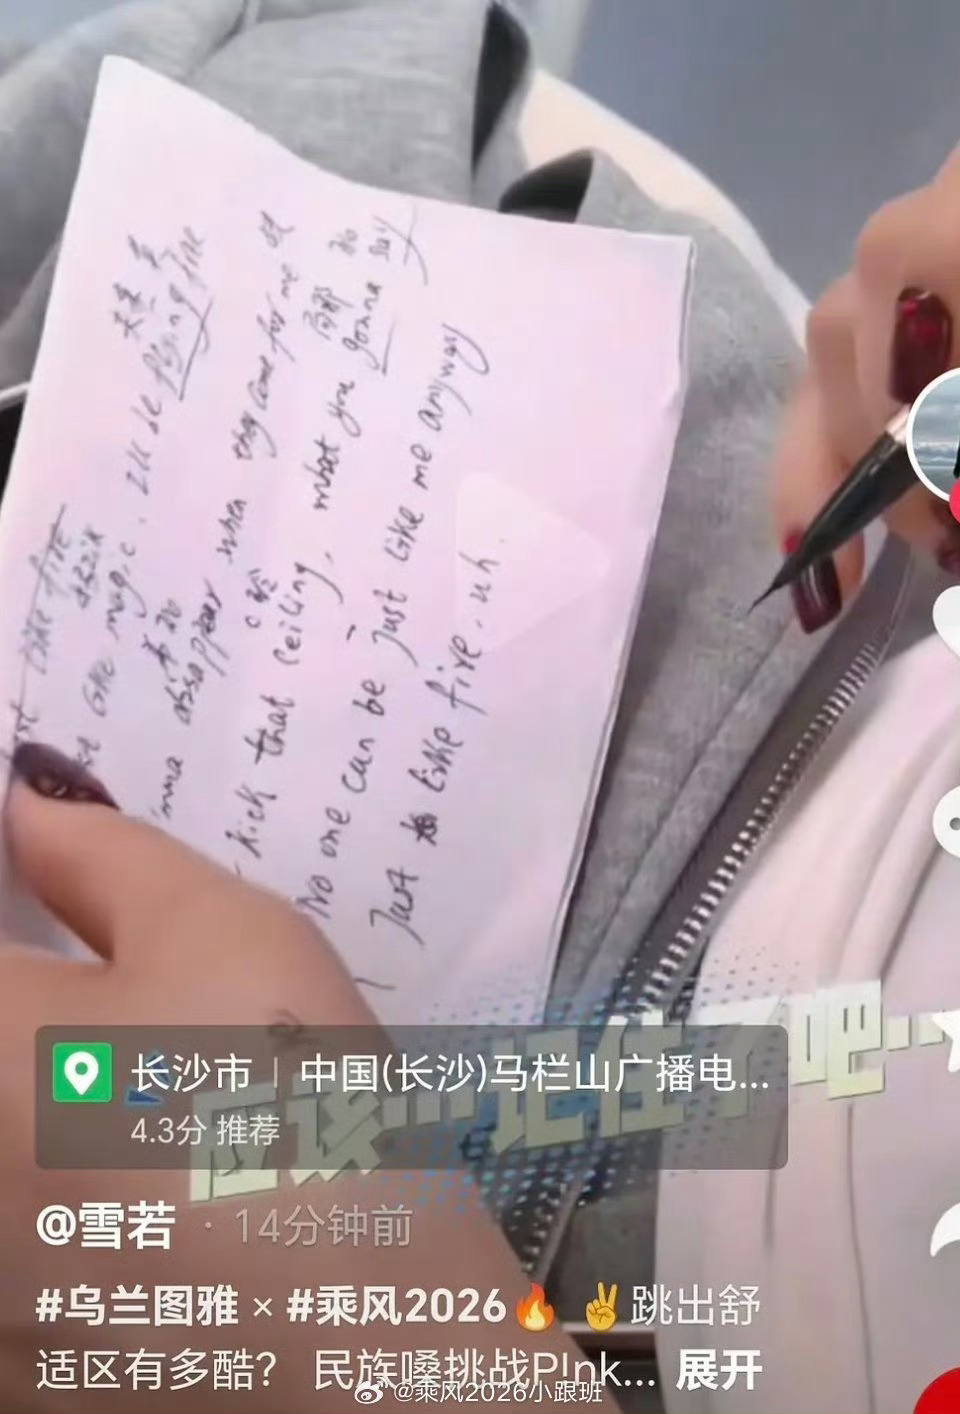 Just like fire
like magic. I'll be flying free
夫来 受
'mma disappear when they come for me
kick that ceiling, what you gonna say
No one can be just like me anyway
Just like fire. uh.
应该……记住了吧……
长沙市 | 中国(长沙)马栏山广播电...
4.3分 推荐
@雪若 · 14分钟前
#乌兰图雅 × #乘风2026🔥 ✌️跳出舒
适区有多酷? 民族嗓挑战P!nk... 展开
@乘风2026小跟班